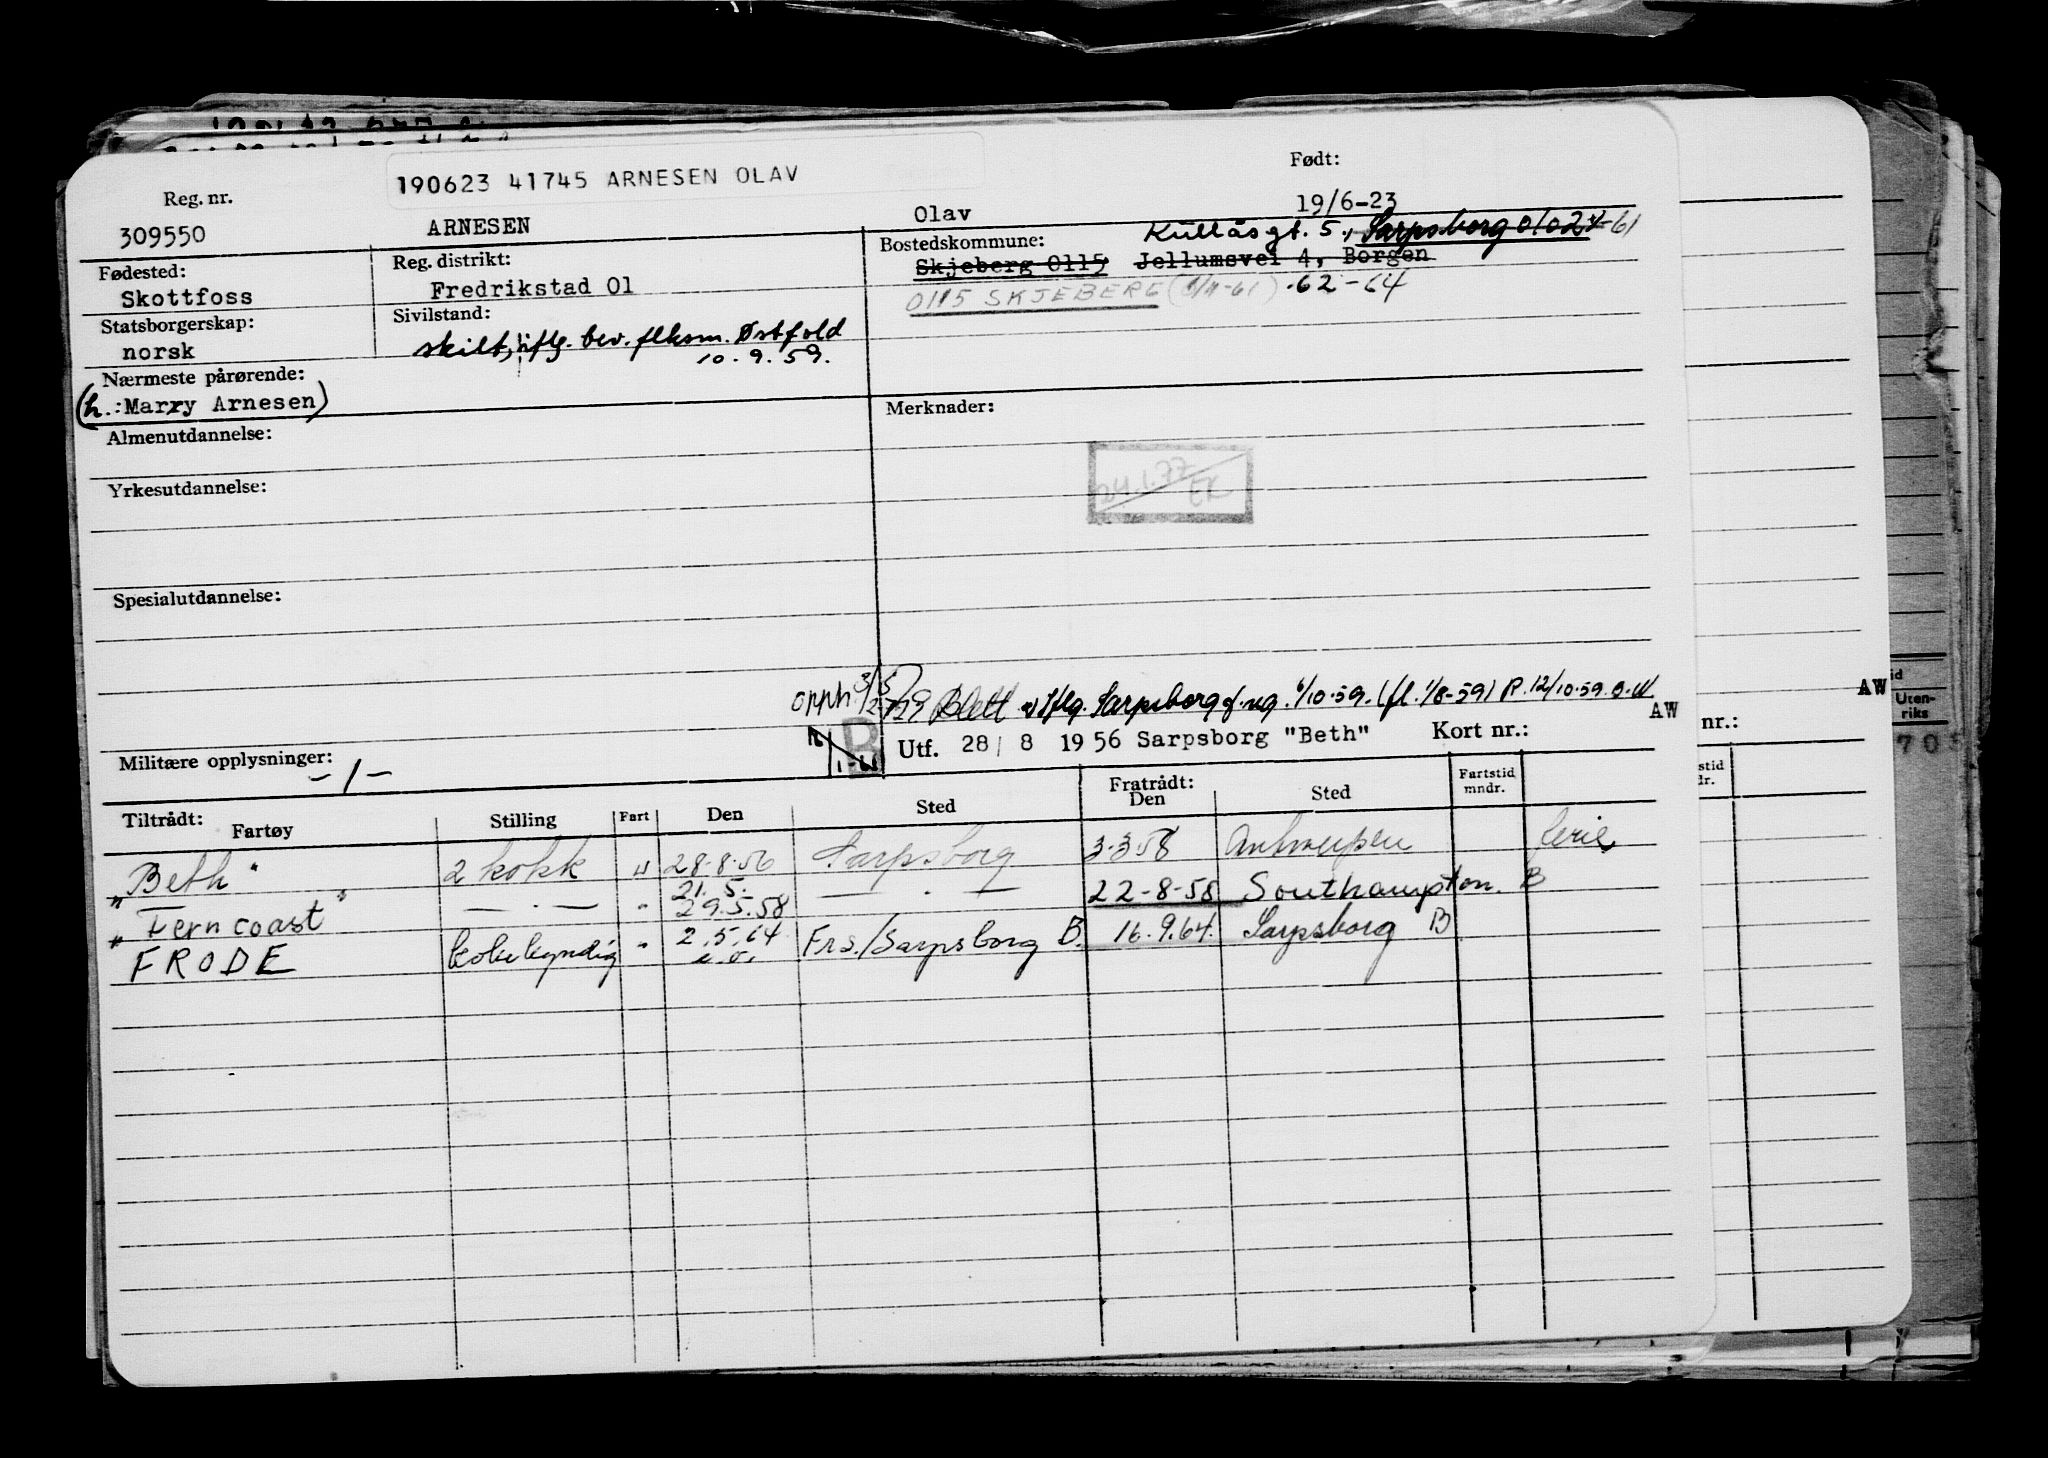 190623 41745 ARNESEN OLAV
Reg. nr.
309550
ARNESEN
Olav
Født:
19/6-23
Fødested:
Skottfoss
Reg. distrikt:
Fredrikstad 01
Bostedskommune:
Kullåsgt. 5, Sarpsborg 0102
Skjeberg 0115 Jellumsvei 4, Borgen
0115 SKJEBERG 62-64
Statsborgerskap:
norsk
Sivilstand:
skilt, iflg. bev. flksm. Østfold
10.9.59.
Nærmeste pårørende:
(h.: Marry Arnesen)
Almenutdannelse:
Merknader:
24.1.77 EK
Yrkesutdannelse:
Spesialutdannelse:
opph.
Slett iflg. Sarpsborg 6/10-59. (fl. 1/8-59) R. 12/10-59.
AW
AW
Militære opplysninger:
-1-
B
Utf. 28/8 1956 Sarpsborg "Beth" Kort nr.:
nr.:
Uten-
riks
Tiltrådt:
Fartøy
Stilling
Fart
Den
Sted
Fratrådt:
Den
Sted
Fartstid
mndr.
"Beth" 2 kokk u 28-8-56 Sarpsborg 3-3-58 Antwerpen ferie
"Ferncoast" — . — " 21.5. 29.5.58 — . — 22-8-58 Southampton. B
"FRODE kokekyndig " 2.5.64 Frs./Sarpsborg B. 16.9.64. Sarpsborg B